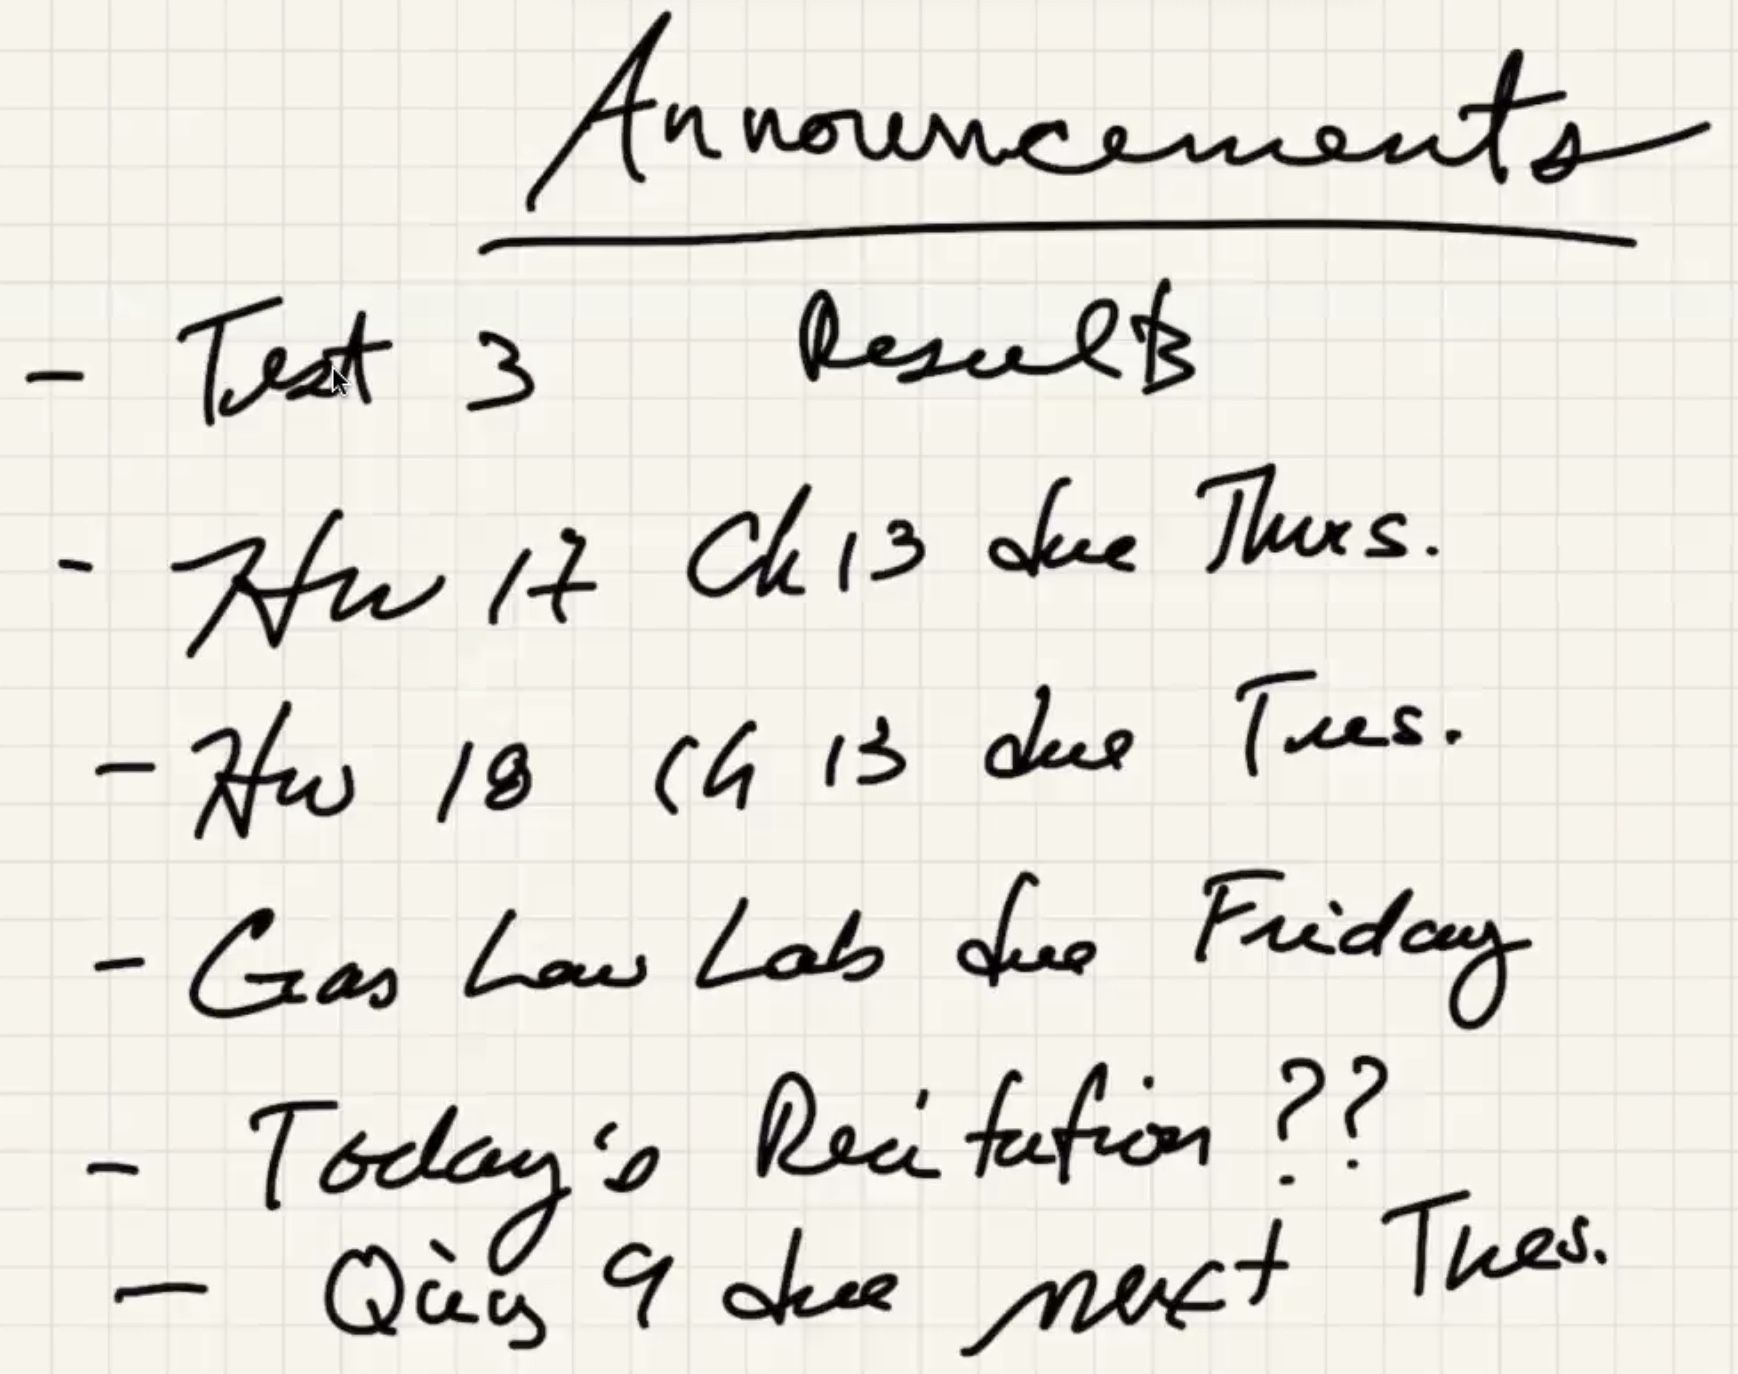 Announcements
- Test 3 Results
- Hw 17 Ch 13 due Thurs.
- Hw 18 Ch 13 due Tues.
- Gas Law Lab due Friday
- Today's Recitation ??
- Quiz 9 due next Tues.